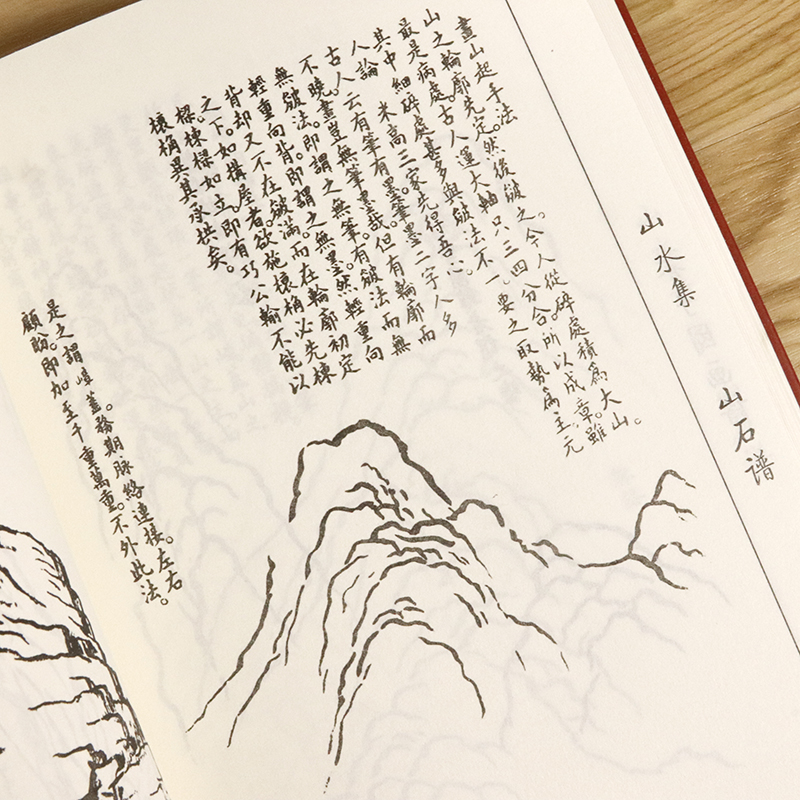 山水集 山石谱
畫山起手法。
山之輪廓先定。然後皴之。今人從碎處積為大山。
最是病處。古人運大軸只三四分合。所以成章。雖
其中細碎處甚多與皴法不一。要之取勢為主。元
人論米高三家先得吾心。
古人云有筆有墨。筆墨二字人多
不曉。畫豈無筆墨哉。但有輪廓而
無皴法。即謂之無筆。有皴法而無
輕重向背。即謂之無墨。然輕重向
背却又不在皴滿。而在輪廓初定
之下。如搆屋者。欲施榱桷必先棟
樑。棟樑如立。即有巧公輸不能以
榱桷異其承拱矣。
是之謂嶂蓋。務期脉絡連接。左右
顧盼。即加至千重萬重。不外此法。